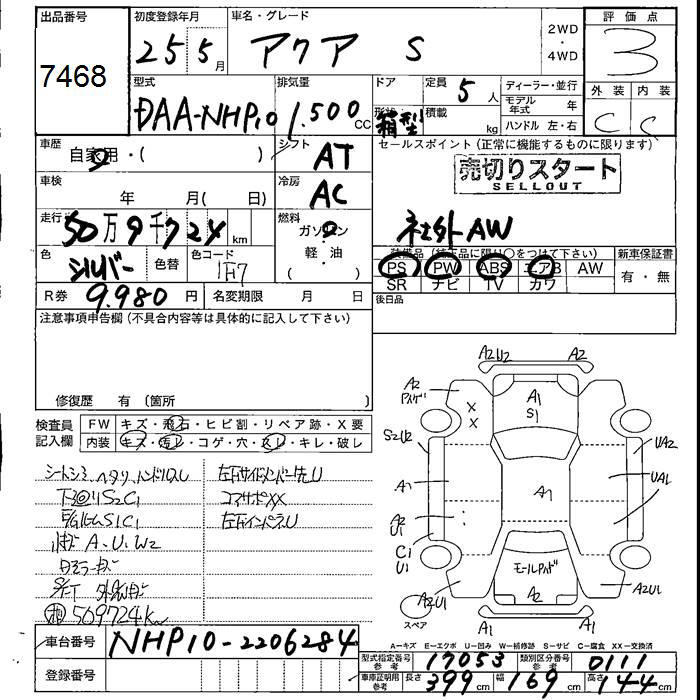 出品番号 初度登録年月 車名・グレード 評価点
7468 25 5月 アクア S 2WD・4WD 3
型式 排気量 ドア 定員 5人 ディーラー・並行 外装 内装
DAA-NHP10 1,500cc 形状 箱型 積載 kg モデル年式 年 C C
ハンドル 左・右
車歴 自家用・( ) シフト AT セールスポイント(正常に機能するものに限ります)
車検 年 月( 日) 冷房 AC 売切りスタート
SELLOUT
走行 50万9千724km 燃料 ガソリン 社外AW
軽・油
( )
色 シルバー 色替 色コード 1F7 装備品(純正品に限り○をつけて下さい) 新車保証書
PS PW ABS エアB AW 有・無
SR ナビ TV カワ
R券 9,980円 名変期限 月 日 後日品
注意事項申告欄(不具合内容等は具体的に記入して下さい)
修復歴 有(箇所
検査員記入欄 FW キズ・飛石・ヒビ割・リペア跡・X要
内装 キズ・汚レ・コゲ・穴・スレ・キレ・破レ
シートシミ ヘタリ ハンドルスレ 左Fサイドメンバー先U
下廻りS2C1 コアサポXX
左FインパネU
A.U.W2
509724km
車台番号 NHP10-2206284
登録番号
A2U2 A2
A2
A1
S1
S2U2 UA2
A1 A1 UA1
A2
U1
C1
U1 モール
A2U1 A2 A2U1
スペア A1 A1
A=キズ E=エクボ U=凹み W=補修跡 S=サビ C=腐食 XX=交換済
型式指定番号 参考 17053 類別区分番号 参考 0111
車庫証明用 参考 長さ 399cm 幅 169cm 高さ 144cm